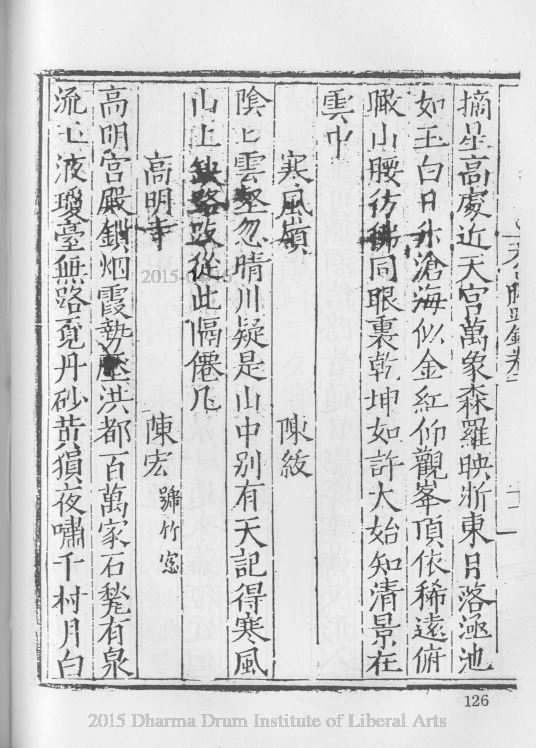 摘星高處近天宮萬象森羅映浙東月落極池
如玉白日升滄海似金紅仰觀峯頂依稀遠俯
瞰山腰彷彿同眼裏乾坤如許大始知清景在
雲中
寒風嶺 陳紋
陰匕雲壑忽晴川疑是山中別有天記得寒風
山上缺路從此隔僊凡
高明寺 陳宏 號竹窓
高明宮殿鎖烟霞勢壓洪都百萬家石甃有泉
流玉液瓊臺無路覓丹砂昔猿夜嘯千村月白
126
2015-0
2015 Dharma Drum Institute of Liberal Arts